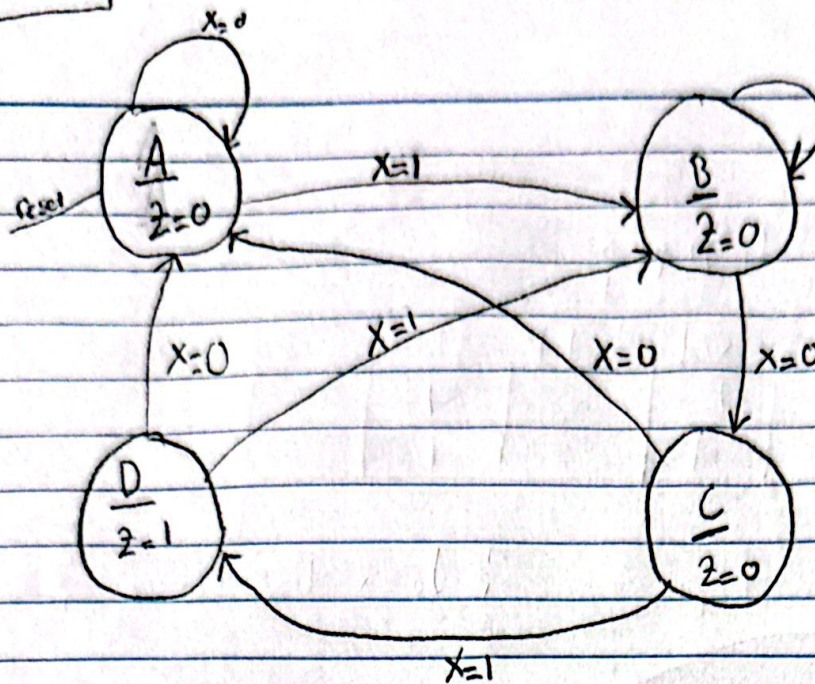 X=0
A
Z=0
reset
X=1
B
Z=0
X=0
X=1
X=0
X=0
D
Z=1
C
Z=0
X=1